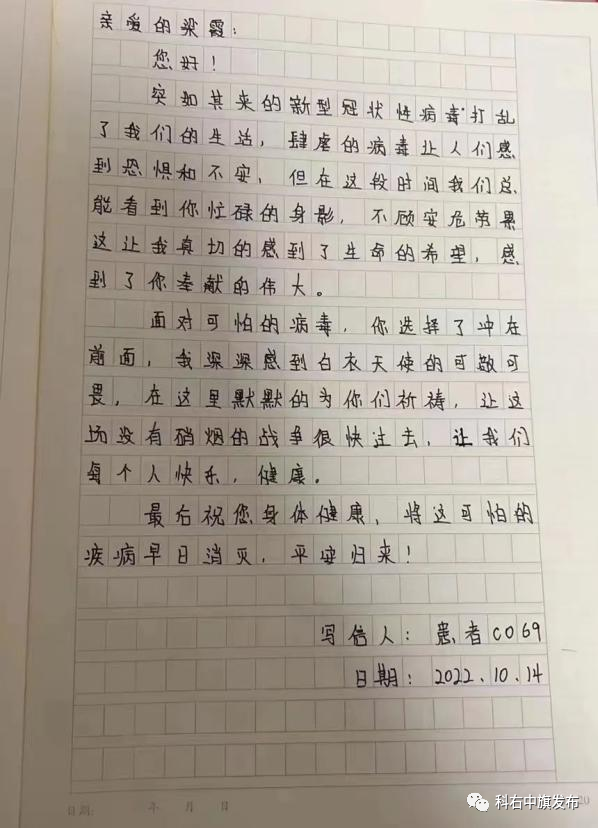 亲爱的梁霞：
您好！
突如其来的新型冠状性病毒打乱
了我们的生活，肆虐的病毒让人们感
到恐惧和不安，但在这段时间我们总
能看到你忙碌的身影，不顾安危劳累
这让我真切的感到了生命的希望，感
到了你奉献的伟大。
面对可怕的病毒，你选择了冲在
前面，我深深感到白衣天使的可敬可
畏，在这里默默的为你们祈祷，让这
场没有硝烟的战争很快过去，让我们
每个人快乐，健康。
最后祝您身体健康，将这可怕的
疾病早日消灭，平安归来！
写信人：患者C069
日期：2022.10.14
日期： 年 月 日
科右中旗发布
20